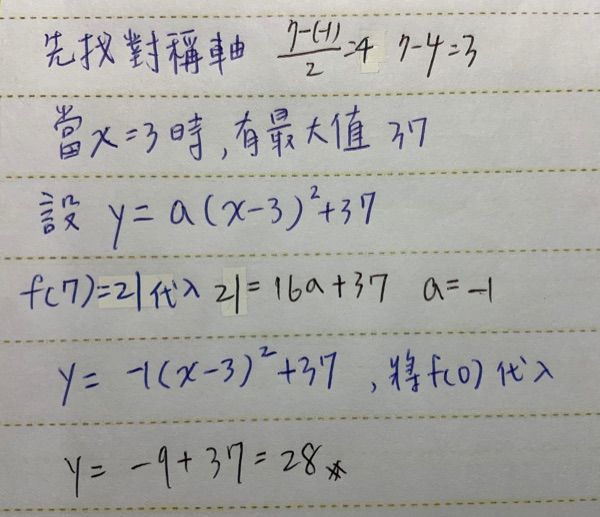 先找對稱軸 7-(-1)/2=4 7-4=3
當x=3時,有最大值 37
設 y=a(x-3)²+37
f(7)=21代入 21=16a+37 a=-1
y=-1(x-3)²+37 ,將f(0)代入
y=-9+37=28※